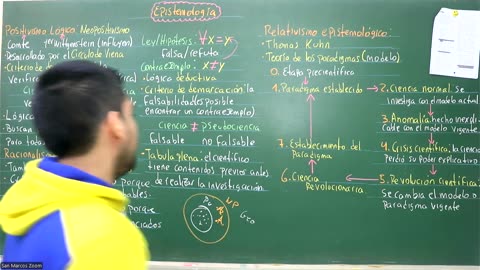 Epistemología
Positivismo Lógico: Neopositivismo
Comte 1er Wittgenstein (influyen)
Desarrollado por el Círculo de Viena
Criterio de
Verific
Cien
• Lógica
Buscan
Para todas
Racionalis
• Tam
C
ables:
porque
nciados
Ley/Hipótesis: ∀x=y
Falsa/refuta
Contraejemplo: x≠y
• Lógica deductiva
• Criterio de demarcación: la
falsabilidad (es posible
encontrar un contraejemplo)
Ciencia ≠ Pseudociencia
falsable no falsable
• Tabula plena: el científico
tiene contenidos previos antes
de realizar la investigación
porque
Relativismo epistemológico:
• Thomas Kuhn
• Teoría de los paradigmas (modelo)
0. Etapa precientífica
1. Paradigma establecido → 2. Ciencia normal: se
investiga con el modelo actual
3. Anomalía: hecho inexpli-
cable con el modelo vigente
4. Crisis científica: la ciencia
perdió su Poder explicativo
5. Revolución científica:
se cambia el modelo o
Paradigma vigente
6. Ciencia
Revolucionaria
7. Establecimiento del
Paradigma
San Marcos Zoom